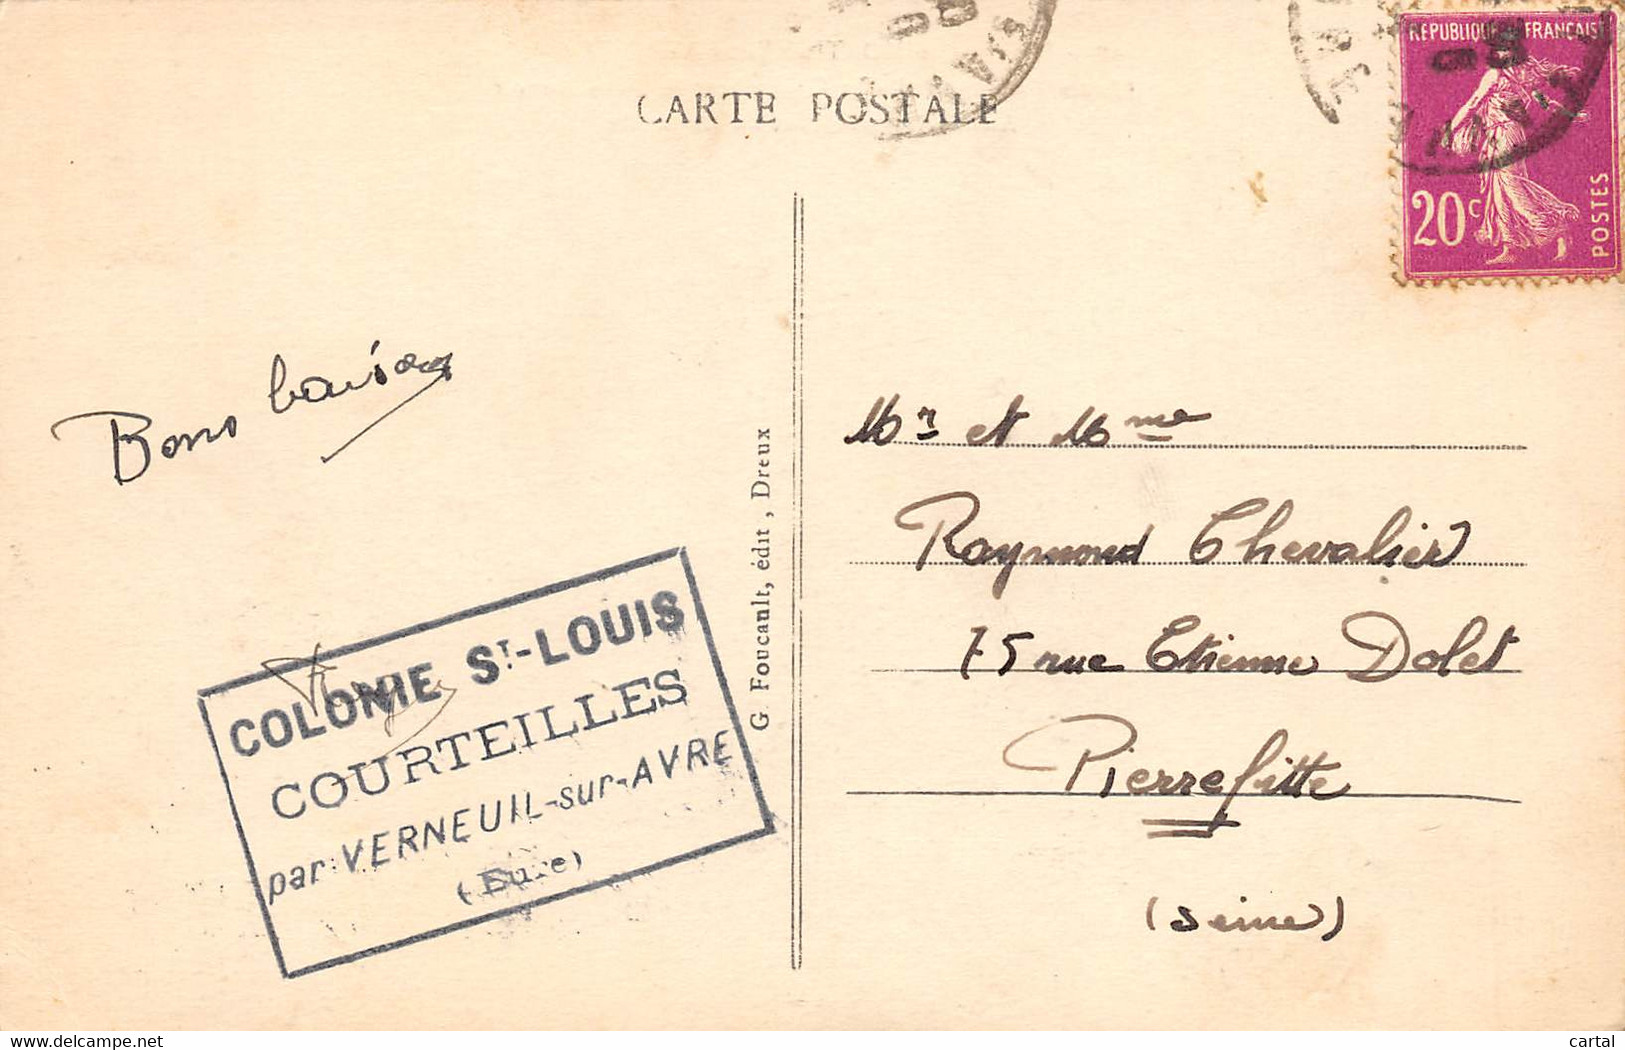 CARTE POSTALE
REPUBLIQUE FRANÇAISE
20c
POSTES
Bons baisers
COLONIE St-LOUIS
COURTEILLES
par VERNEUIL-sur-AVRE
(Eure)
G. Foucault, édit, Dreux
Mr et Mme
Raymond Chevalier
75 rue Etienne Dolet
Pierrefitte
(Seine)
www.delcampe.net
cartal